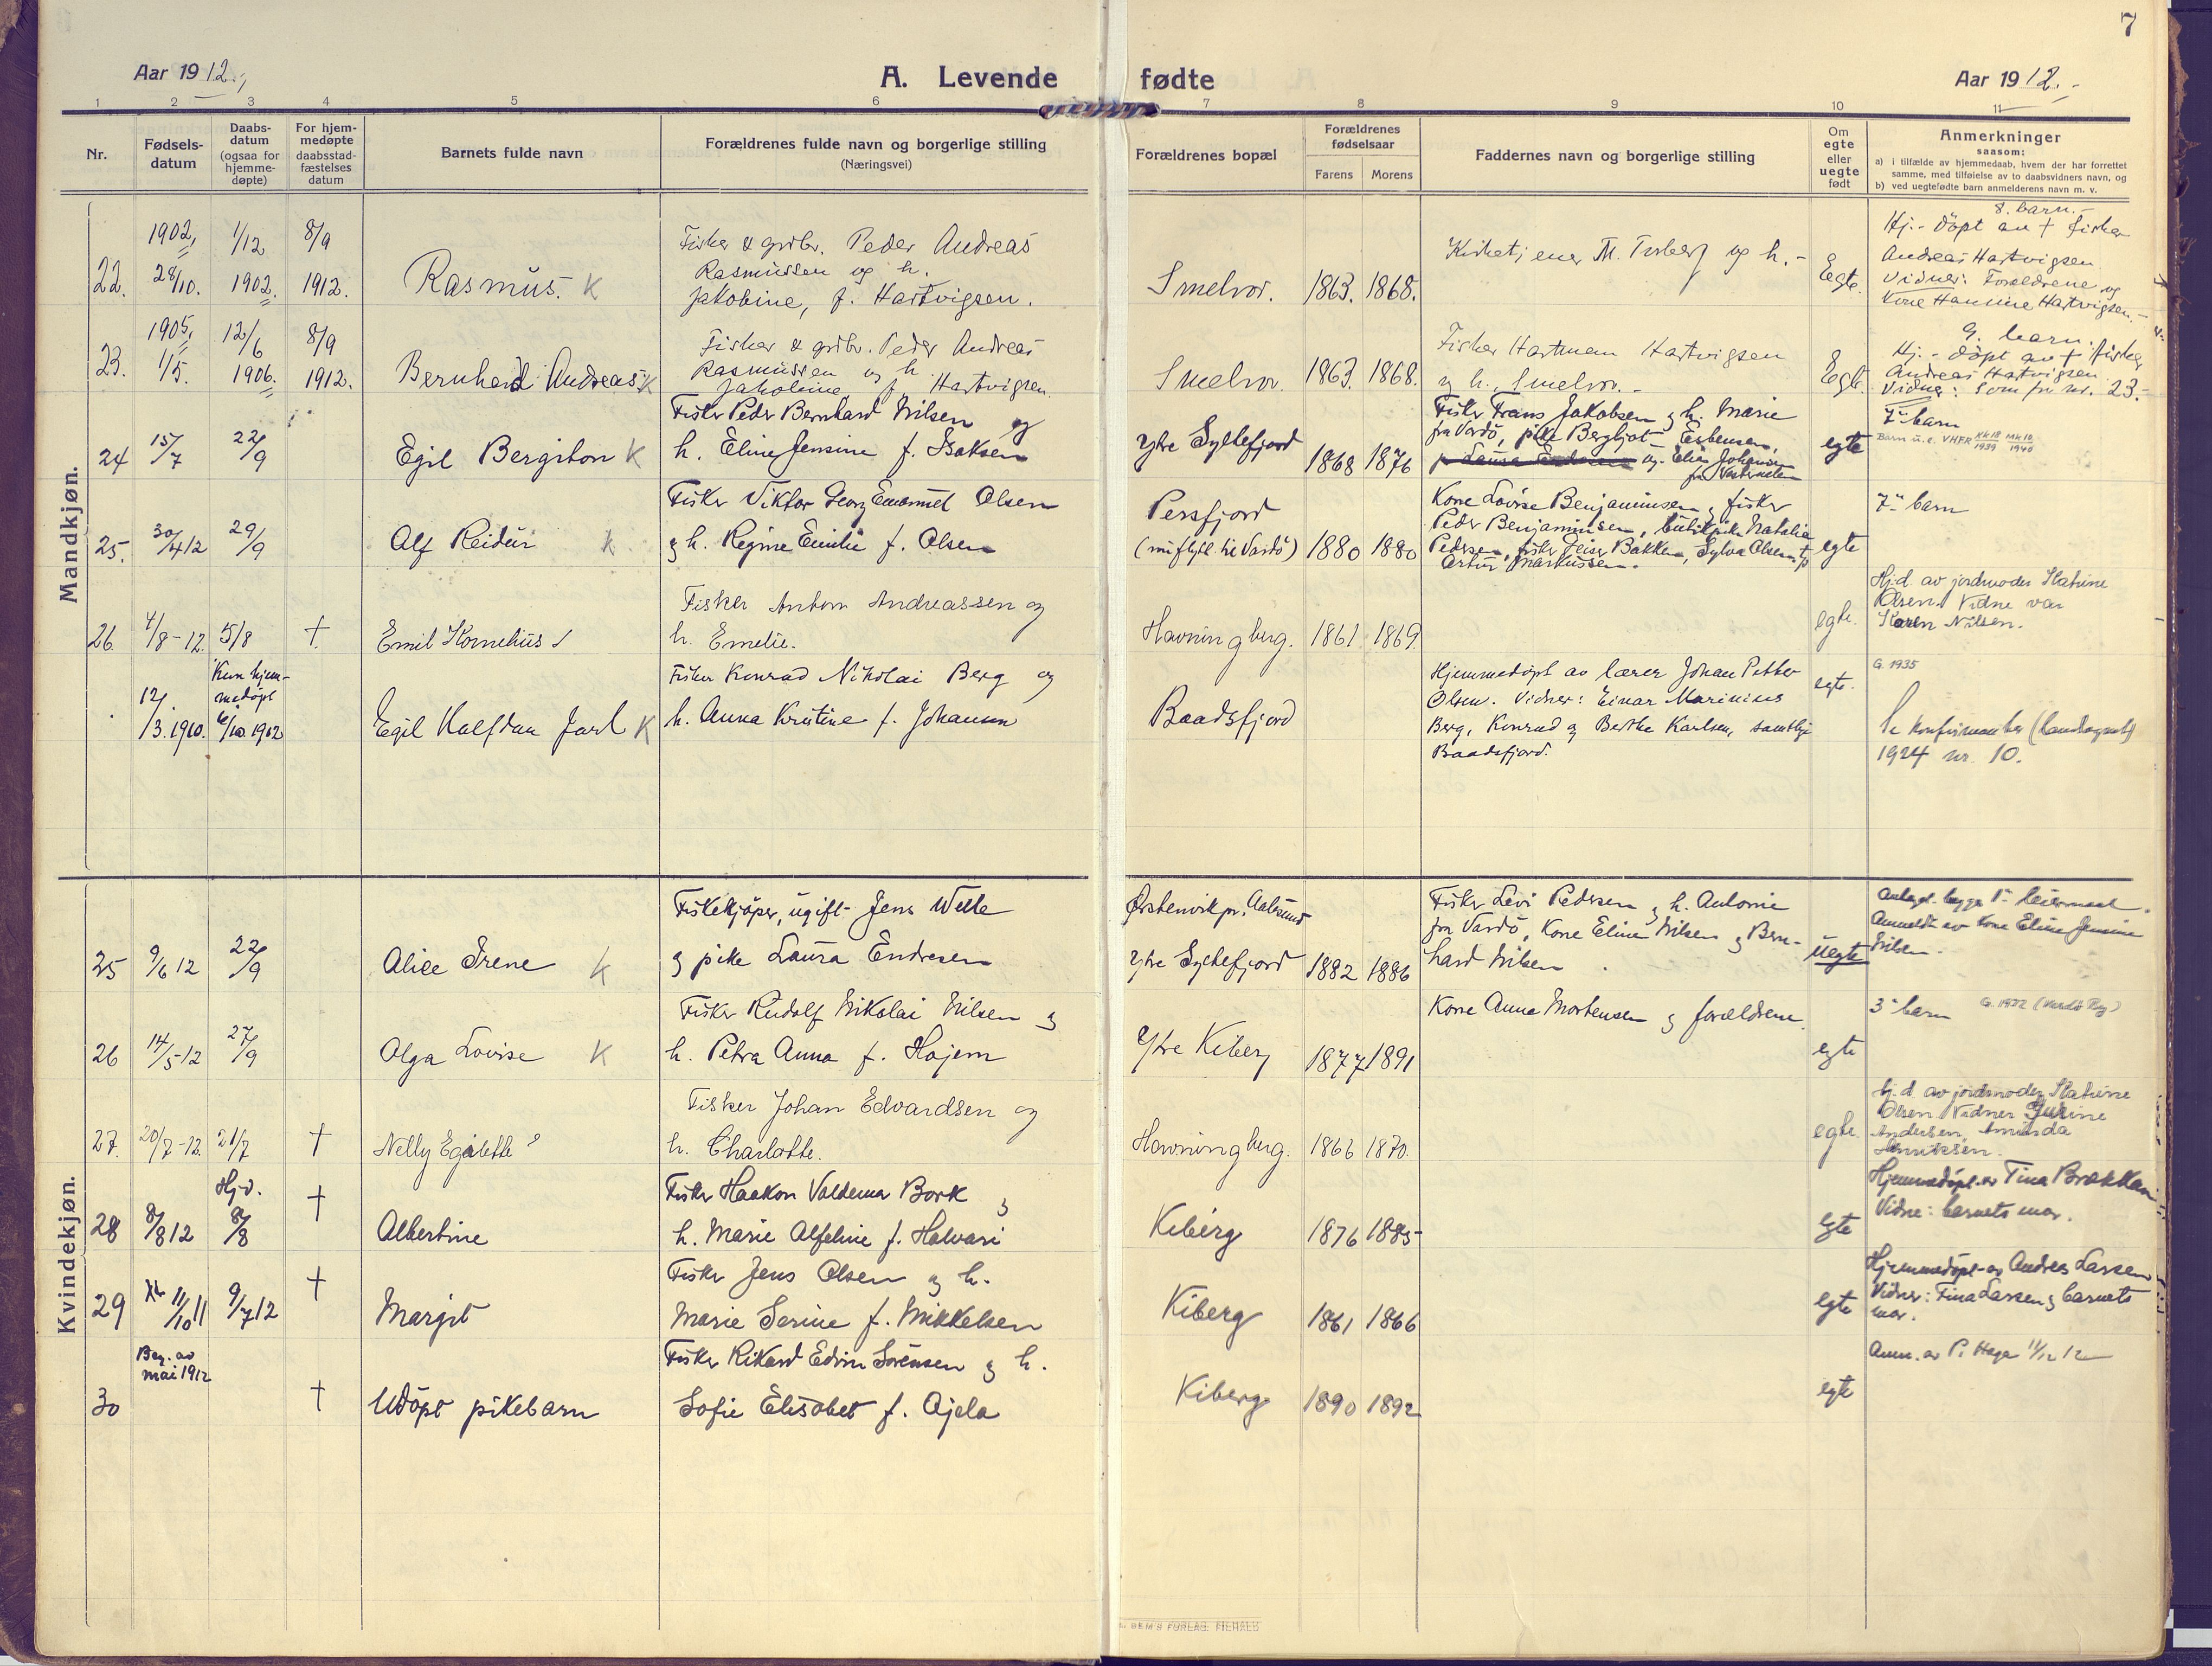 7
Aar 1912.
A. Levende fødte
Aar 1912.
1 2 3 4 5 6 7 8 9 10 11
Nr.
Fødsels-
datum
Daabs-
datum
(ogsaa for
hjemme-
døpte)
For hjem-
medøpte
daabsstad-
fæstelses
datum
Barnets fulde navn
Forældrenes fulde navn og borgerlige stilling
(Næringsvei)
Forældrenes bopæl
Forældrenes
fødselsaar
Farens Morens
Faddernes navn og borgerlige stilling
Om
egte
eller
uegte
født
Anmerkninger
saasom:
a) i tilfælde av hjemmedaab, hvem der har forrettet
samme, med tilføielse av to daabsvidners navn, og
b) ved uegtefødte barn anmelderens navn m. v.
Mandkjøn.
22. 1902, 28/10. 1/12 1902. 8/9 1912.
Rasmus. K
Fisker & grdbr. Peder Andreas
Rasmussen og h.
Jakobine, f. Hartvigsen.
Smelror. 1863. 1868.
og h.-
Egte.
8. barn.-
Hj.- döpt av † fisker
Andreas Hartvigsen.
Vidner: Forældrene og
Kone Hartvigsen.-
23. 1905, 1/5. 12/6 1906. 8/9 1912.
Bernhard Andreas K
Fisker & grdbr. Peder Andreas
Rasmussen og h.
Jakobine f. Hartvigsen.
Smelror. 1863. 1868.
Fisker Hartman Hartvigsen
og h., Smelror.-
Egte.
9. barn.
Hj.- döpt av † fisker
Andreas Hartvigsen
Vidner: Som for nr. 23.-
24 15/7 22/9
Egil Bergiton K
Fisker Peder Bernhard Nilsen og
h. Eline Jensine f. Isaksen
Ytre Syltefjord 1868 1876
Fisker Frans Jakobsen og h. Marie
fra Vardö, pike Bergljot Esbensen,
og Elias Johansen
egte
7de barn
Barn u.e. VHFR KK18 1939 MK10 1940
25. 30/4 12 29/9
Alf Reidur K
Fisker Viktor Georg Emanuel Olsen
og h. Regine Emilie f. Olsen
Persfjord
(nu flytt. til Vardö) 1880 1880
Kone Lovise Benjaminsen og fisker
Peder Benjaminsen, butikpike Natalia
Pedersen, fisker Bakken, Sylva Olsen
Artur Markussen.
egte
7de barn
26. 4/8-12. 5/8 †
Emil Kornelius
Fisker Anton Andreassen og
h. Emelie.
Havningberg. 1861 1869.
egte.
Hj.d. av jordmoder Statine
Olsen. Vidne var
Karen Nilsen.
12/3.1910. Kun hjem-
medöpt
6/10.1912
Egil Halfdan Jarl K
Fisker Konrad Nikolai Berg og
h. Anna Kristine f. Johansen
Baadsfjord
Hjemmedöpt av lærer Johan Petter
Olsen. Vidner: Einar Marinius
Berg, Konrad og Berthe Karlsen, samtlige
Baadsfjord.
egte.
G. 1935
Se konfirmanter
1924 nr. 10.
Kvindekjøn.
25 9/6 12 22/9
Alice Irene K
Fiskekjöper, ugift Jens Welle
og pike Laura Endresen
Ørstenvik pr. Aalesund
Ytre Syltefjord 1882 1886
Fisker Levi Pedersen og h. Antonie
fra Vardö, Kone Eline Nilsen og Bern-
hard Nilsen
uegte
Antagel. begge 1ste leiermaal.
Anmeldt av Kone Eline Jensine
Nilsen.
26 14/5-12 27/9
Olga Lovise K
Fisker Rudolf Nikolai Nilsen og
h. Petra Anna f. Hojem
Ytre Kiberg 1877 1891
Kone Anna Mortensen og forældrene.
egte
3de barn
27. 20/7-12. 21/7 †
Nelly
Fisker Johan Edvardsen og
h. Charlotte.
Havningberg. 1866 1870.
egte.
Hj.d. av jordmoder Statine
Olsen. Vidner
Andersen, Amunda
Henriksen.
28 8/8 12 Hj.d. 8/8 †
Albertine
Fisker Haakon Valdemar Bork og
h. Marie Alfeline f. Halvari
Kiberg 1876 1885
egte
Hjemmedöpt av Tina Brækkan
Vidne: barnets mor.
29 11/10 11 9/7 12 †
Margit
Fisker Jens Olsen og h.
Marie Serine f. Mikkelsen
Kiberg 1861 1866
egte
Hjemmedöpt av Andreas Larsen
Vidner: Tina Larsen og barnets
mor.
30 Beg. av
mai 1912 †
Udöpt pikebarn
Fisker Rikard Edvin Sörensen og h.
Sofie Elisabet f. Ajela
Kiberg 1890 1892
egte
Anm. av P. Haga 11/12 12